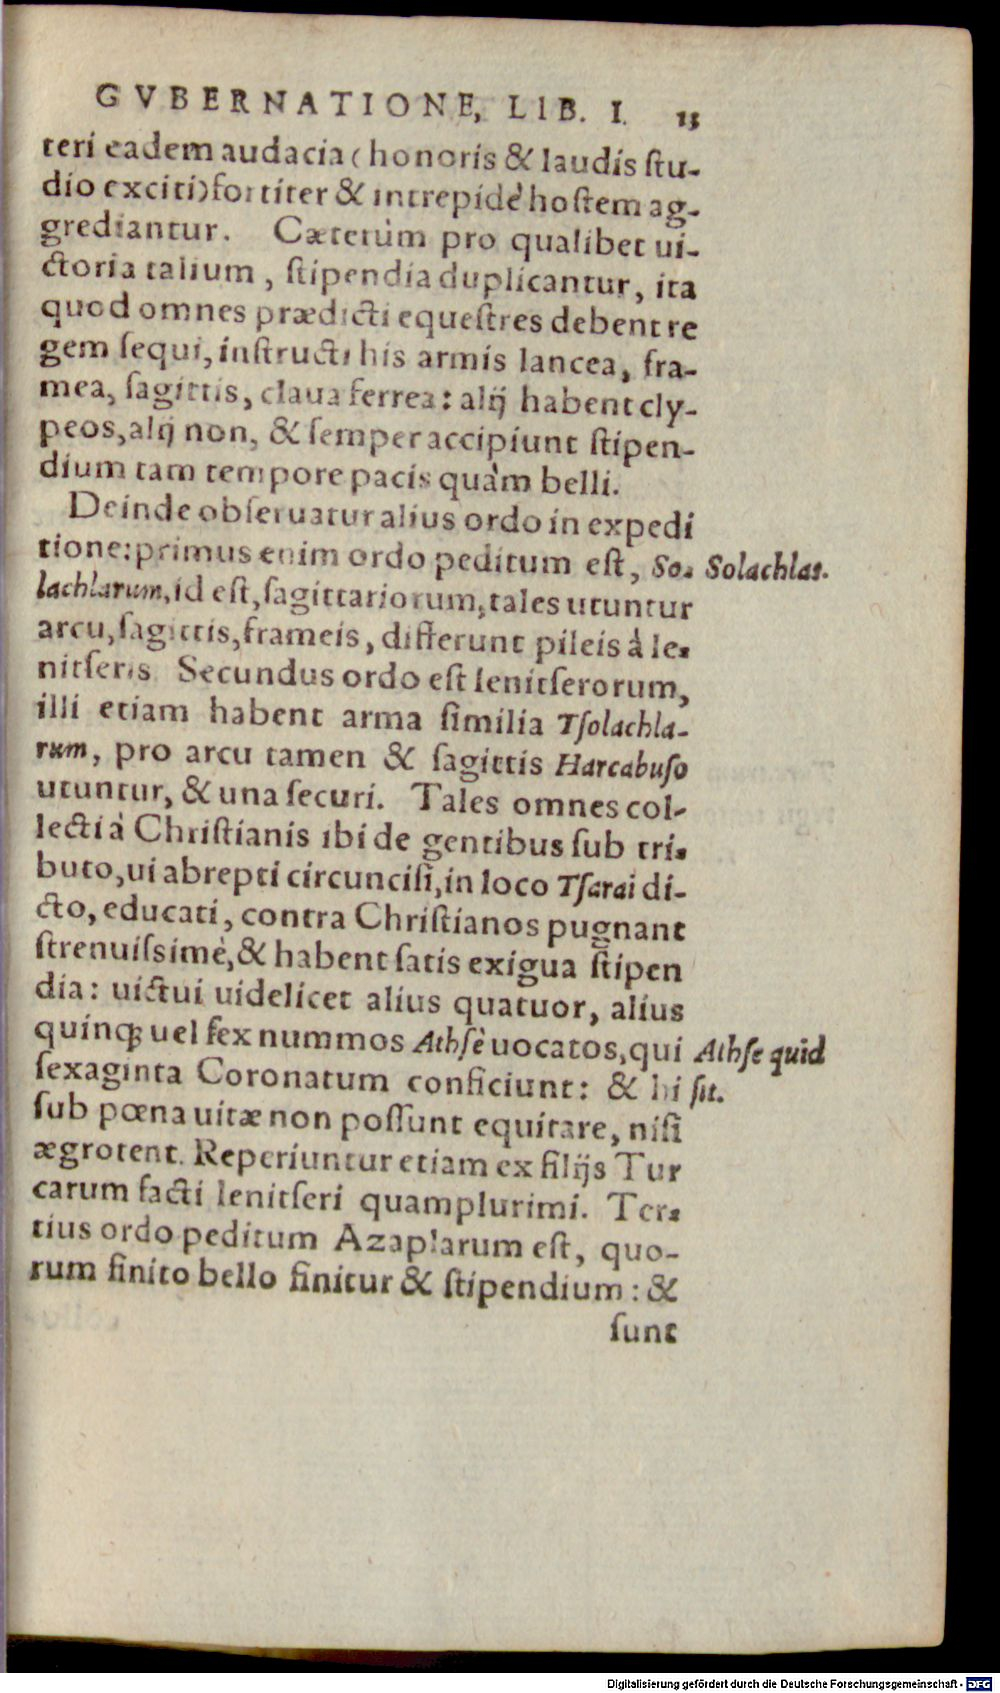 GVBERNATIONE, LIB. I. 13
teri eadem audacia (honoris & laudis ſtu-
dio exciti) fortiter & intrepidè hoſtem ag-
grediantur. Cæterùm pro qualibet ui-
ctoria talium, ſtipendia duplicantur, ita
quod omnes prædicti equeſtres debent re
gem ſequi, inſtructi his armis lancea, fra-
mea, ſagittis, claua ferrea: alij habent cly-
peos, alij non, & ſemper accipiunt ſtipen-
dium tam tempore pacis quàm belli.
Deinde obſeruatur alius ordo in expedi
tione: primus enim ordo peditum eſt, So- Solachlar.
lachlarum, id eſt, ſagittariorum, tales utuntur
arcu, ſagittis, frameis, differunt pileis à Ie-
nitſeris. Secundus ordo eſt Ienitſerorum,
illi etiam habent arma ſimilia Tſolachla-
rum, pro arcu tamen & ſagittis Harcabuſo
utuntur, & una ſecuri. Tales omnes col-
lecti à Chriſtianis ibi de gentibus ſub tri-
buto, ui abrepti circunciſi, in loco Tſarai di-
cto, educati, contra Chriſtianos pugnant
ſtrenuiſsimè, & habent ſatis exigua ſtipen
dia: uictui uidelicet alius quatuor, alius
quinq; uel ſex nummos Athſè uocatos, qui Athſe quid
ſexaginta Coronatum conficiunt: & hi ſit.
ſub pœna uitæ non poſſunt equitare, niſi
ægrotent. Reperiuntur etiam ex filijs Tur
carum facti Ienitſeri quamplurimi. Ter-
tius ordo peditum Azaplarum eſt, quo-
rum finito bello finitur & ſtipendium: &
ſunt
Digitalisierung gefördert durch die Deutsche Forschungsgemeinschaft - DFG